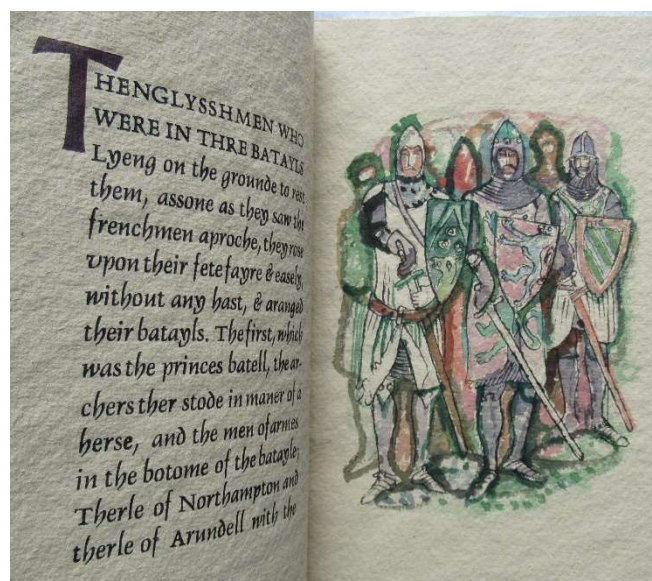 THENGLYSSHMEN WHO
WERE IN THRE BATAYLS
Lyeng on the grounde to rest
them, assone as they saw the
frenchmen aproche, they rose
upon their fete fayre & easely,
without any hast, & aranged
their batayls. The first, which
was the princes batell, the ar-
chers ther stode in maner of a
herse, and the men of armes
in the botome of the batayle;
Therle of Northampton and
therle of Arundell with the